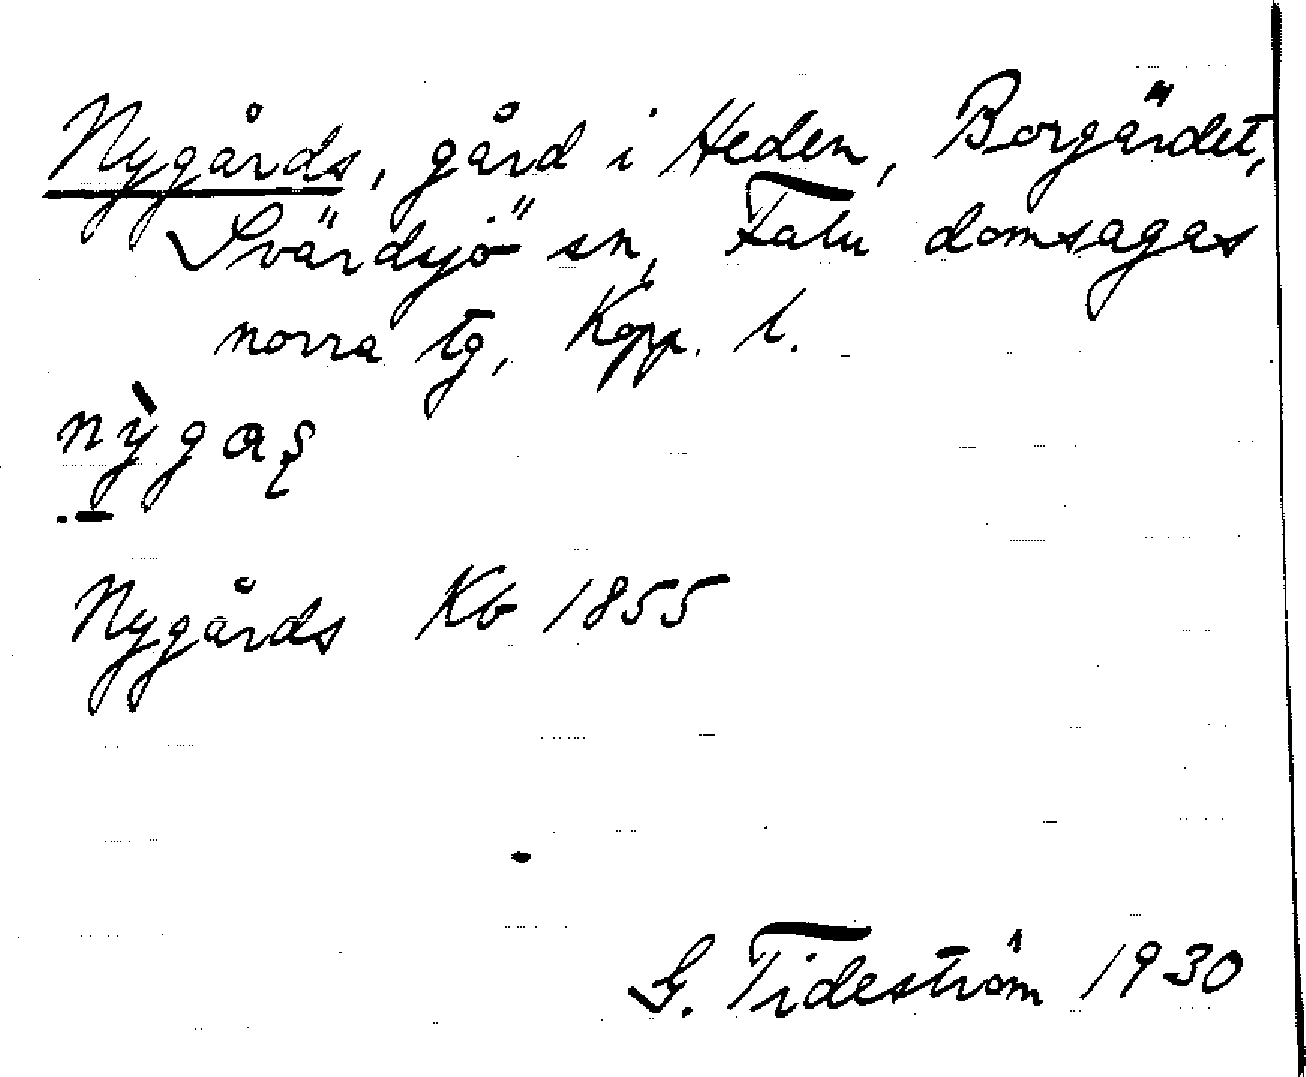 Nygårds, gård i Heden, Borgärdet,
Svärdsjö sn, Falu domsagas
norra tg, Kopp. l.
nỳgaʂ
Nygårds Kb 1855
G. Tideström 1930